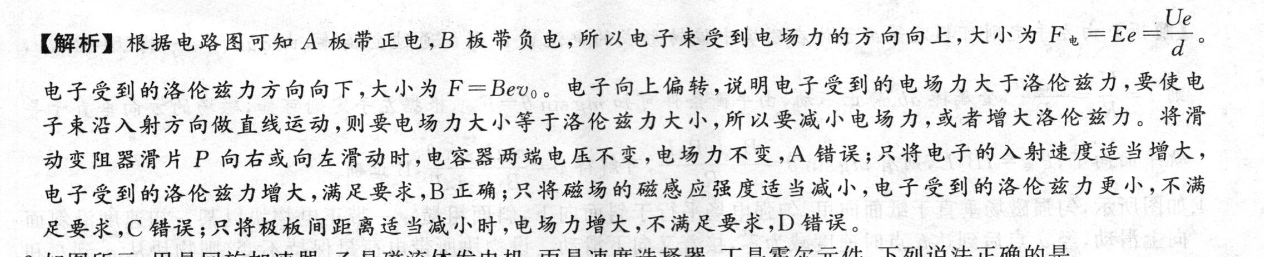 【解析】根据电路图可知 A 板带正电,B 板带负电,所以电子束受到电场力的方向向上,大小为 F电=Ee=Ue/d。
电子受到的洛伦兹力方向向下,大小为 F=Bev₀。电子向上偏转,说明电子受到的电场力大于洛伦兹力,要使电
子束沿入射方向做直线运动,则要电场力大小等于洛伦兹力大小,所以要减小电场力,或者增大洛伦兹力。将滑
动变阻器滑片 P 向右或向左滑动时,电容器两端电压不变,电场力不变,A 错误;只将电子的入射速度适当增大,
电子受到的洛伦兹力增大,满足要求,B 正确;只将磁场的磁感应强度适当减小,电子受到的洛伦兹力更小,不满
足要求,C 错误;只将极板间距离适当减小时,电场力增大,不满足要求,D 错误。